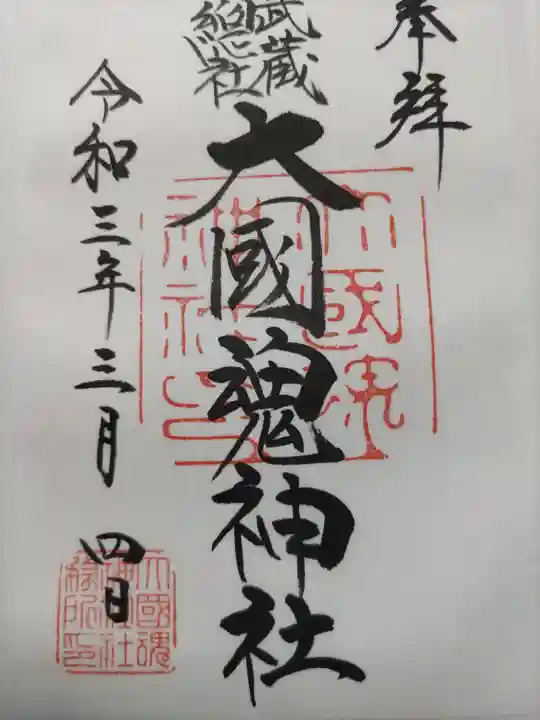 奉拝
武蔵
総社
大國魂神社
令和三年三月四日
大國魂
神社
務所印